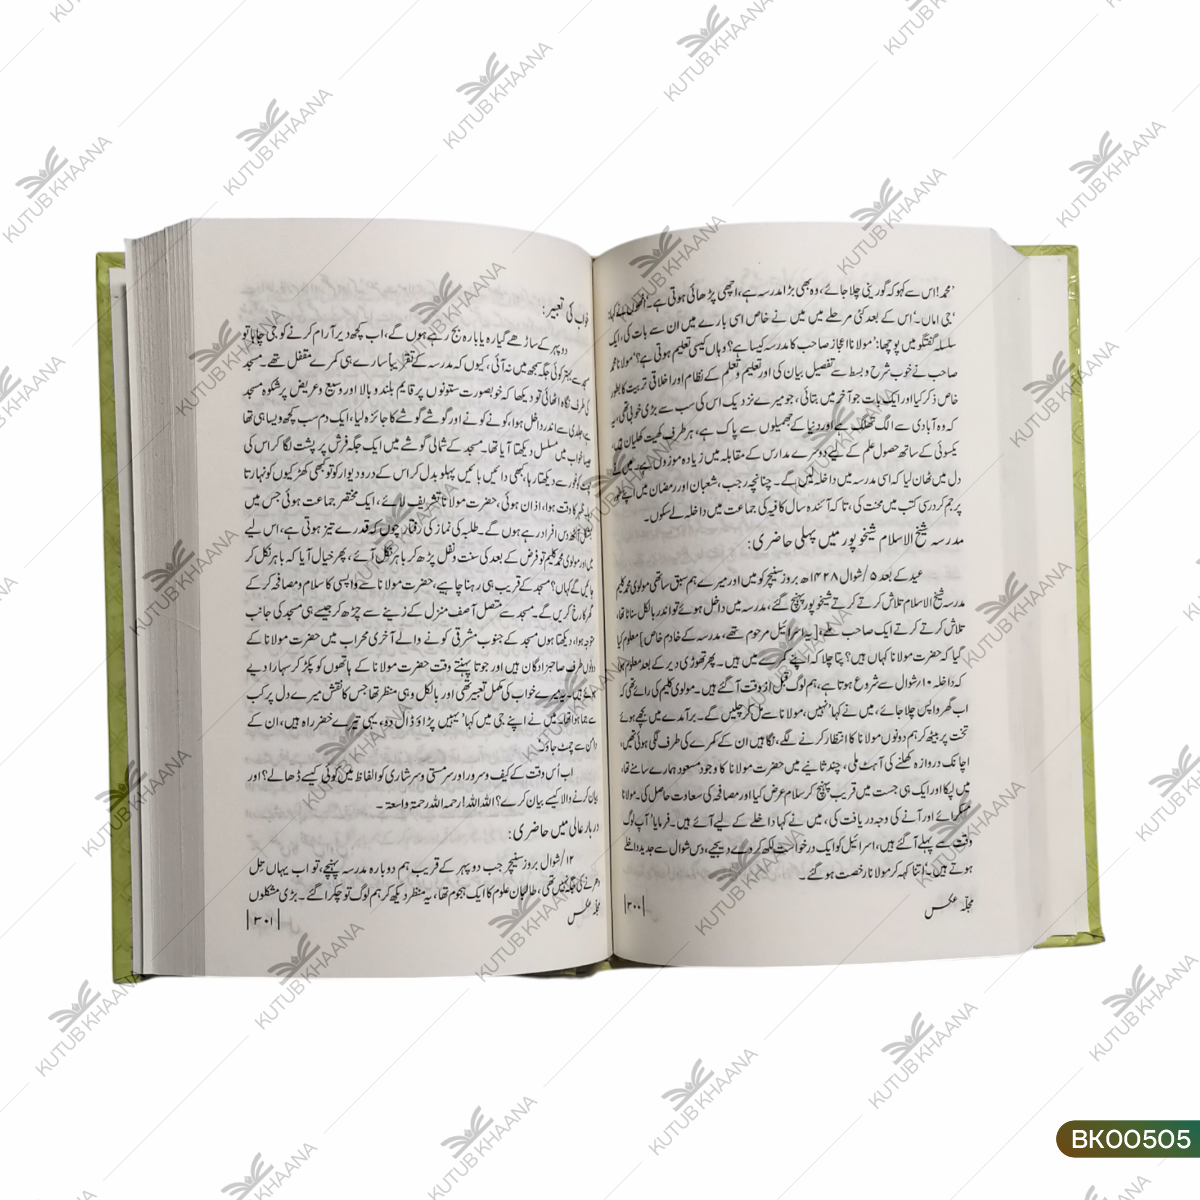 'محمد! اس سے کہو کہ گورینی چلا جائے، وہ بھی بڑا مدرسہ ہے، اچھی پڑھائی ہوتی ہے۔
'جی اماں۔' اس کے بعد کئی مرحلے میں میں نے خاص اسی بارے میں ان سے بات کی، ایک
سلسلہ گفتگو میں پوچھا: 'مولانا اعجاز صاحب کا مدرسہ کیسا ہے؟ وہاں کیسی تعلیم ہوتی ہے؟' مولانا محمد
صاحب نے خوب شرح و بسط سے تفصیل بیان کی اور تعلیم و تعلم کے نظام اور اخلاقی تربیت کا بطور
خاص ذکر کیا اور ایک بات جو آخر میں بتائی، جو میرے نزدیک اس کی سب سے بڑی خوبی تھی، یہ
کہ وہ آبادی سے الگ تھلگ ہے اور دنیا کے جھمیلوں سے پاک ہے، ہر طرف کھیت کھلیان ہیں،
یکسوئی کے ساتھ حصول علم کے لیے دوسرے مدارس کے مقابلہ میں زیادہ موزوں ہے۔ میں نے
دل میں ٹھان لیا کہ اسی مدرسہ میں داخلہ لیں گے۔ چنانچہ رجب، شعبان اور رمضان میں اپنے طور
پر جم کر درسی کتب میں محنت کی، تا کہ آئندہ سال کافیہ کی جماعت میں داخلہ لے سکوں۔
مدرسہ شیخ الاسلام شیخوپور میں پہلی حاضری:
عید کے بعد ۵/ شوال ۱۴۲۸ھ بروز سنیچر کو میں اور میرے ہم سبق ساتھی مولوی محمد کلیم
مدرسہ شیخ الاسلام تلاش کرتے کرتے شیخوپور پہنچ گئے، مدرسہ میں داخل ہوئے تو اندر بالکل سناٹا تھا،
تلاش کرتے کرتے ایک صاحب ملے، [یہ اسرائیل مرحوم تھے، مدرسہ کے خادم خاص] معلوم کیا
گیا کہ حضرت مولانا کہاں ہیں؟ پتا چلا کہ اپنے کمرے میں ہیں۔ پھر تھوڑی دیر کے بعد معلوم ہوا
کہ داخلہ ۱۰/ شوال سے شروع ہوتا ہے، ہم لوگ قبل از وقت آگئے ہیں۔ مولوی کلیم کی رائے تھی کہ
اب گھر واپس چلا جائے، میں نے کہا 'نہیں، مولانا سے مل کر چلیں گے۔ برآمدے میں بچھے ہوئے
تخت پر بیٹھ کر ہم دونوں مولانا کا انتظار کرنے لگے، نگاہیں ان کے کمرے کی طرف لگی ہوئی تھیں،
اچانک دروازہ کھلنے کی آہٹ ملی، چند ثانیے میں حضرت مولانا کا وجود مسعود ہمارے سامنے تھا،
میں لپکا اور ایک ہی جست میں قریب پہنچ کر سلام عرض کیا اور مصافحہ کی سعادت حاصل کی۔ مولانا
مسکرائے اور آنے کی وجہ دریافت کی، میں نے کہا داخلے کے لیے آئے ہیں۔ فرمایا 'آپ لوگ
وقت سے پہلے آگئے ہیں، اسرائیل کو ایک درخواست لکھ کر دے دیجیے، دس شوال سے جدید داخلے
ہوتے ہیں۔' اتنا کہہ کر مولانا رخصت ہوگئے۔
مجلّہ عکس
|۳۰۰|
خواب کی تعبیر:
دوپہر کے ساڑھے گیارہ یا بارہ بج رہے ہوں گے، اب کچھ دیر آرام کرنے کو جی چاہا تو
سے بہتر کوئی جگہ سمجھ میں نہ آئی، کیوں کہ مدرسہ کے تقریباً سارے ہی کمرے مقفل تھے۔ مسجد
کی طرف نگاہ اٹھائی تو دیکھا کہ خوبصورت ستونوں پر قایم بلند و بالا اور وسیع و عریض پر شکوہ مسجد
جلدی سے اندر داخل ہوا، کونے کونے اور گوشے گوشے کا جائزہ لیا، ایک دم سب کچھ ویسا ہی تھا
جیسا خواب میں مسلسل دیکھتا آیا تھا۔ مسجد کے شمالی گوشے میں ایک جگہ فرش پر پشت لگا کر اس کی
غور سے دیکھتا رہا، کبھی دائیں بائیں پہلو بدل کر اس کے در و دیوار کو تو کبھی کھڑکیوں کو نہارتا
ظہر کا وقت ہوا، اذان ہوئی، حضرت مولانا تشریف لائے، ایک مختصر جماعت ہوئی جس میں
بمشکل آٹھ دس افراد رہے ہوں گے۔ طلبہ کی نماز کی رفتار چوں کہ قدرے تیز ہوتی ہے، اس لیے
میں اور مولوی محمد کلیم تو فرض کے بعد کی سنت و نفل پڑھ کر باہر نکل آئے، پھر خیال آیا کہ باہر نکل کر
جائیں گے کہاں؟ مسجد کے قریب ہی رہنا چاہیے، حضرت مولانا سے واپسی کا سلام و مصافحہ کر کے
گھر کا رخ کریں گے۔ مسجد سے متصل آصف منزل کے زینے سے چڑھ کر جیسے ہی مسجد کی جانب
متوجہ ہوا، دیکھتا ہوں مسجد کے جنوب مشرقی کونے والے آخری محراب میں حضرت مولانا کے
دونوں طرف صاحبزادگان ہیں اور جوتا پہنتے وقت حضرت مولانا کے ہاتھوں کو پکڑ کر سہارا دیے
ہوئے ہیں۔ یہ میرے خواب کی مکمل تعبیر تھی اور بالکل وہی منظر تھا جس کا نقش میرے دل پر کب
سے جما ہوا تھا۔ میں نے اپنے جی میں کہا 'یہیں پڑاؤ ڈال دو، یہی تیرے خضر راہ ہیں، ان کے
دامن سے چمٹ جاؤ۔'
اب اُس وقت کے کیف و سرور اور سرمستی و سرشاری کو الفاظ میں کوئی کیسے ڈھالے؟ اور
بیان کرنے والا کیسے بیان کرے؟ اللہ اللہ! رحمہ اللہ رحمۃ واسعۃ۔
دربار عالی میں حاضری:
۱۲/ شوال بروز سنیچر جب دوپہر کے قریب ہم دوبارہ مدرسہ پہنچے، تو اب یہاں تِل
دھرنے کی جگہ نہیں تھی، طالبان علوم کا ایک ہجوم تھا، یہ منظر دیکھ کر ہم لوگ تو چکرا گئے۔ بڑی مشکلوں
مجلّہ عکس
|۳۰۱|
KUTUB KHAANA
BK00505